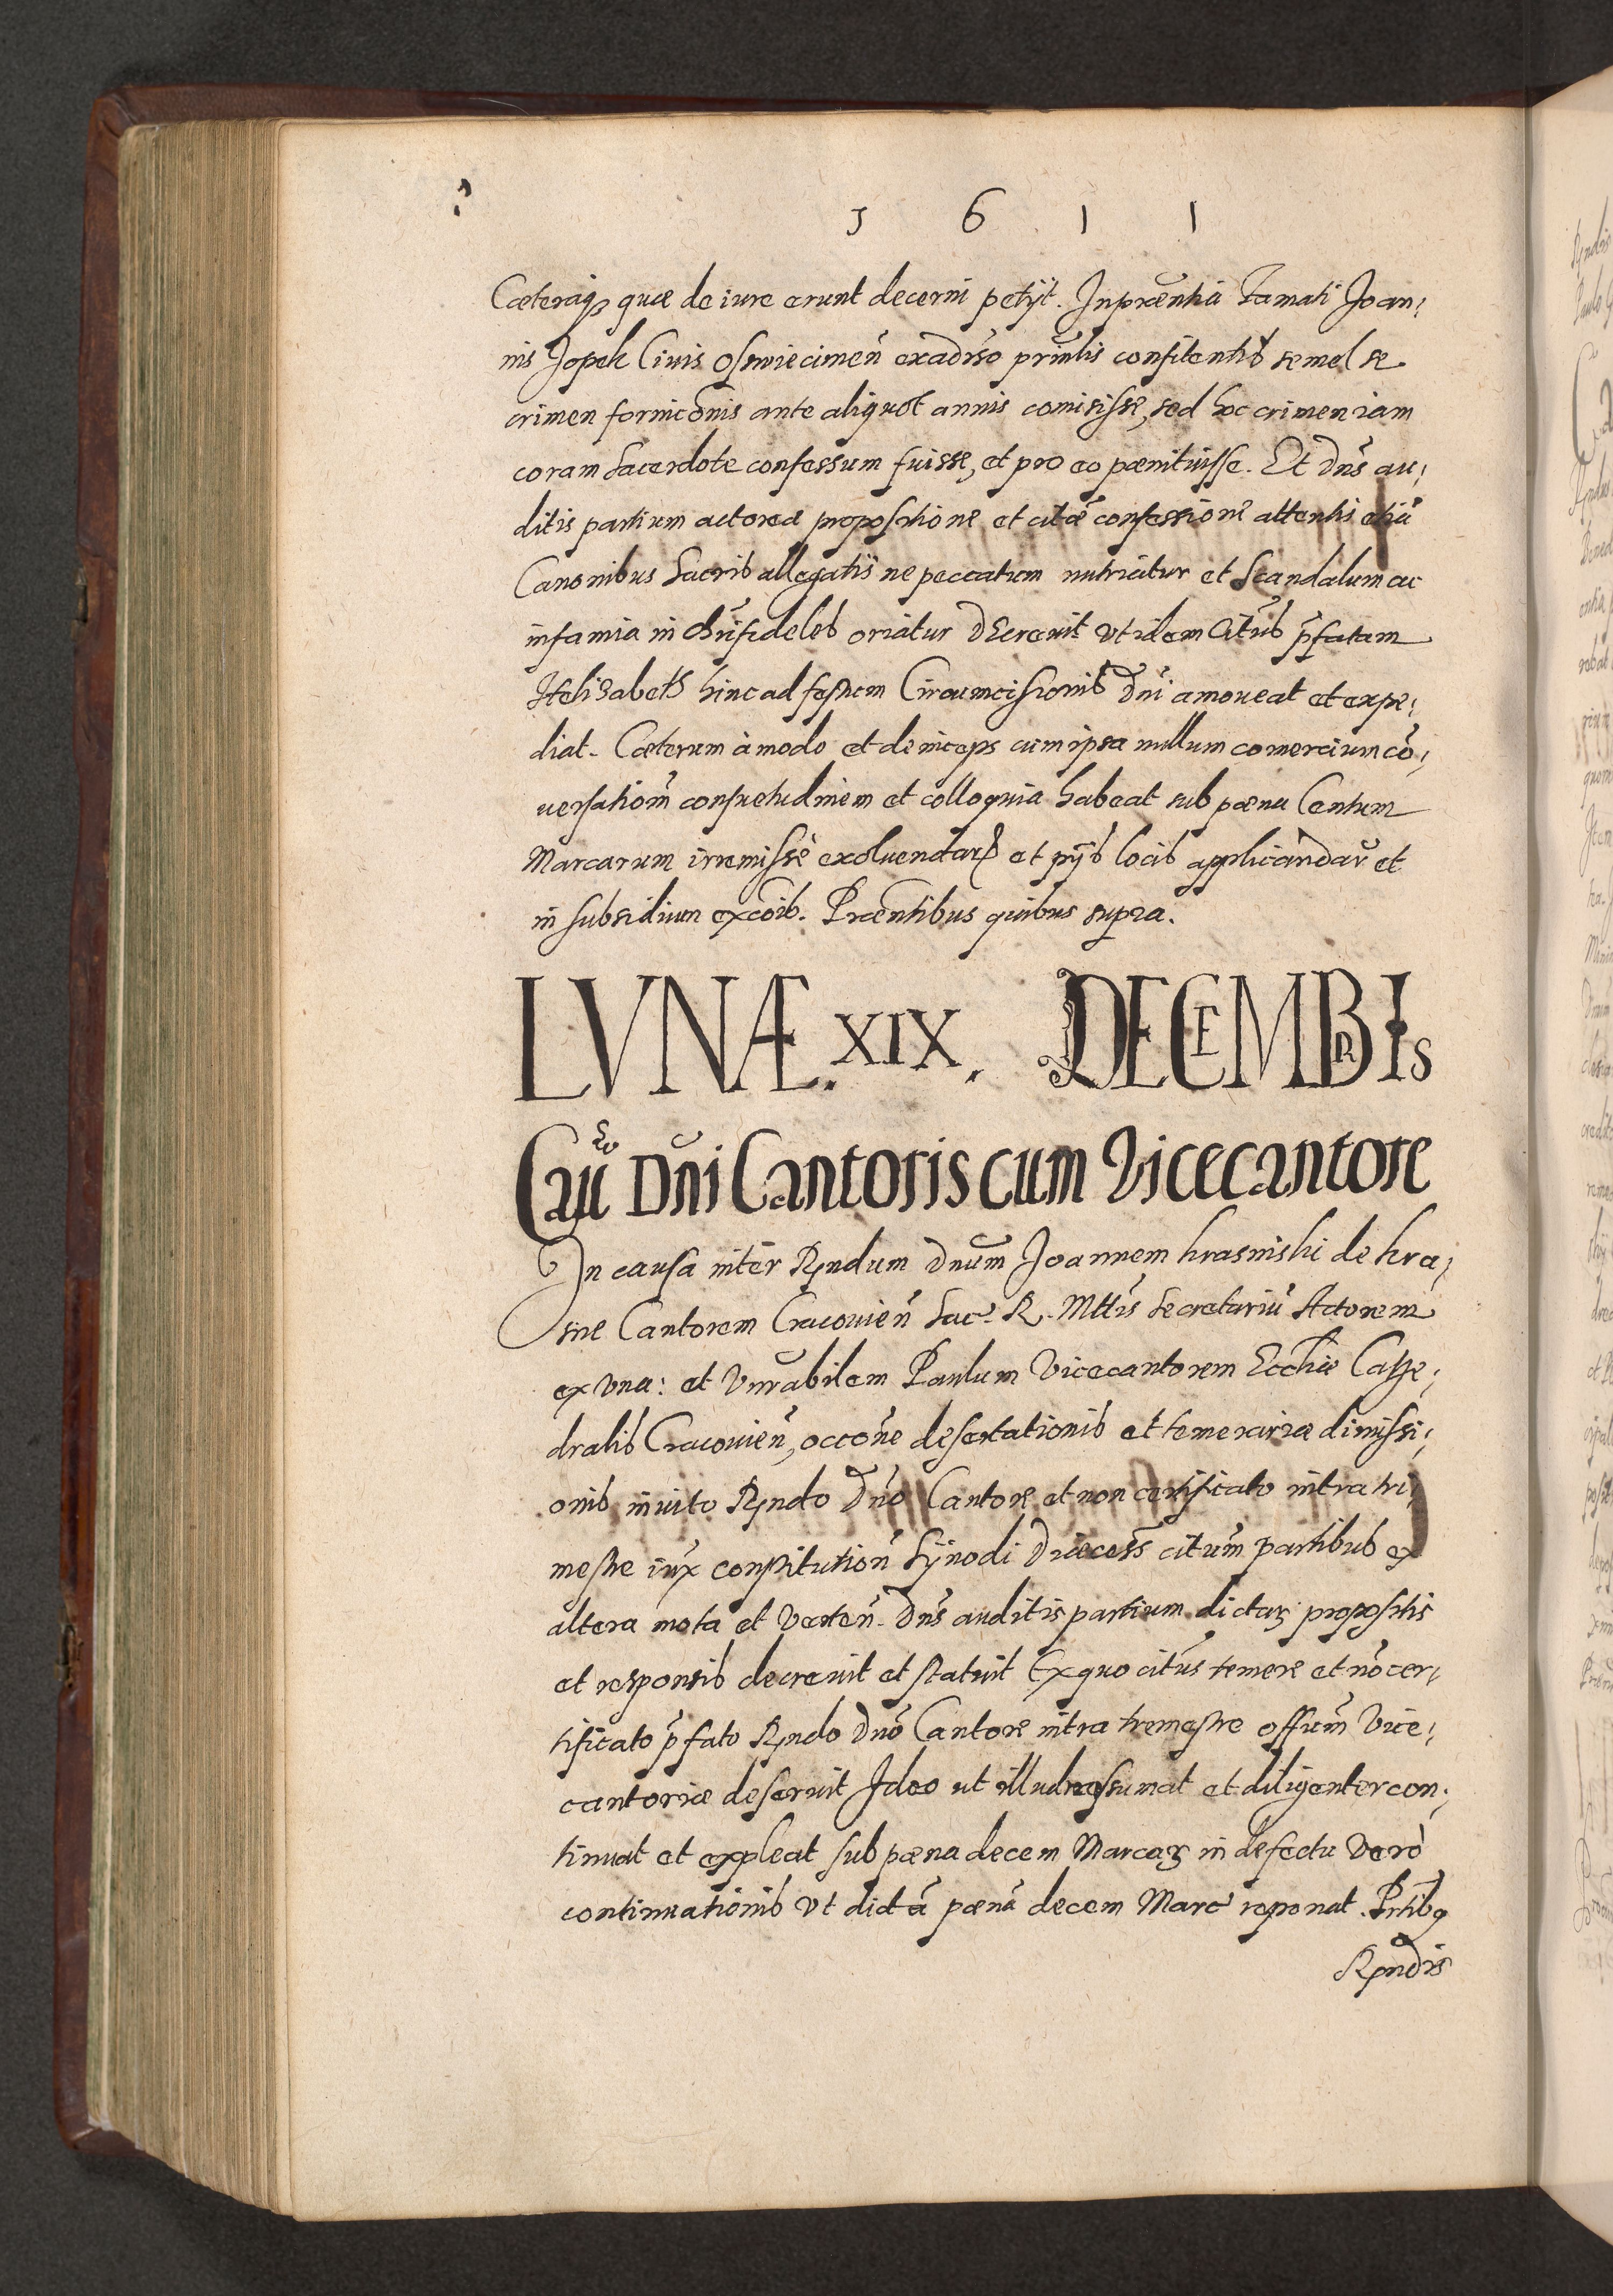 1 6 1 1
Cæteraq₃ quæ de iure erunt decerni petijt. In præntia Famati Joan,
nis Jopek Civis Osswiecimen̄ ex adr̄so prn̄lis confitentis semel se
crimen fornicōnis ante aliquot annis comisisse, sed hoc crimen iam
coram Sacerdote confessum fuisse, et pro eo pœnituisse. Et Dn̄s au,
ditis partium actoreæ propositione et citǣ confessione attentis etiā
Canonibus Sacris allegatis ne peccatum nutriatur et Scandalum ac
infamia in Chrīfideles oriatur DEcrevit vt idem Citūs p̄fatam
Helisabeth hinc ad festum Circumcisionis Dn̄i amoveat et expe,
diat. Cæterum à modo et deinceps cum ipsa nullum comercium cō,
uersationē consuetudinem et colloquia habeat sub pœna Centum
Marcarum irremissē exoluendarꝫ et pijs locis applicandar̄ et
in subsidium excōis. Præn̄tibus quibus supra.
LVNÆ. XIX. DECEMBRIs
Cau͞ Dn̄i Cantoris cum Vicecantore
In causa inter Rn̄dum Dn̄um Joannem krasinski de kra,
sne Cantorem Cracouien̄ Sac. R. Mttīs Secretariū Actorem
ex vna: et Vn̄rabilem Paulum Vicecantorem Ecclīæ Cathe,
dralis Cracouien̄, occōne desertationis et temerariæ dimissi,
onis inuito Rn̄do Dn̄o Cantore et non certificato intra tri,
mestre iux̄ constitution̄ Synodi Diœcess̄ citum̄ partibus ex
altera mota et verten̄. Dn̄s auditis partium dictarꝫ propositis
et responsis decrevit et statuit Ex quo citūs temere et nō cer,
tificato p̄fato Rn̄do Dn̄o Cantore intra tremestre offiūm Vice,
cantoriæ deseruit Ideo ut illud ressumat et diligenter con,
tinuat et expleat sub pœna decem Marcarꝫ in defectu verò
continuationis vt dictā pœnā decem Marc reponat. Prn̄tibꝫ
Rn̄dis